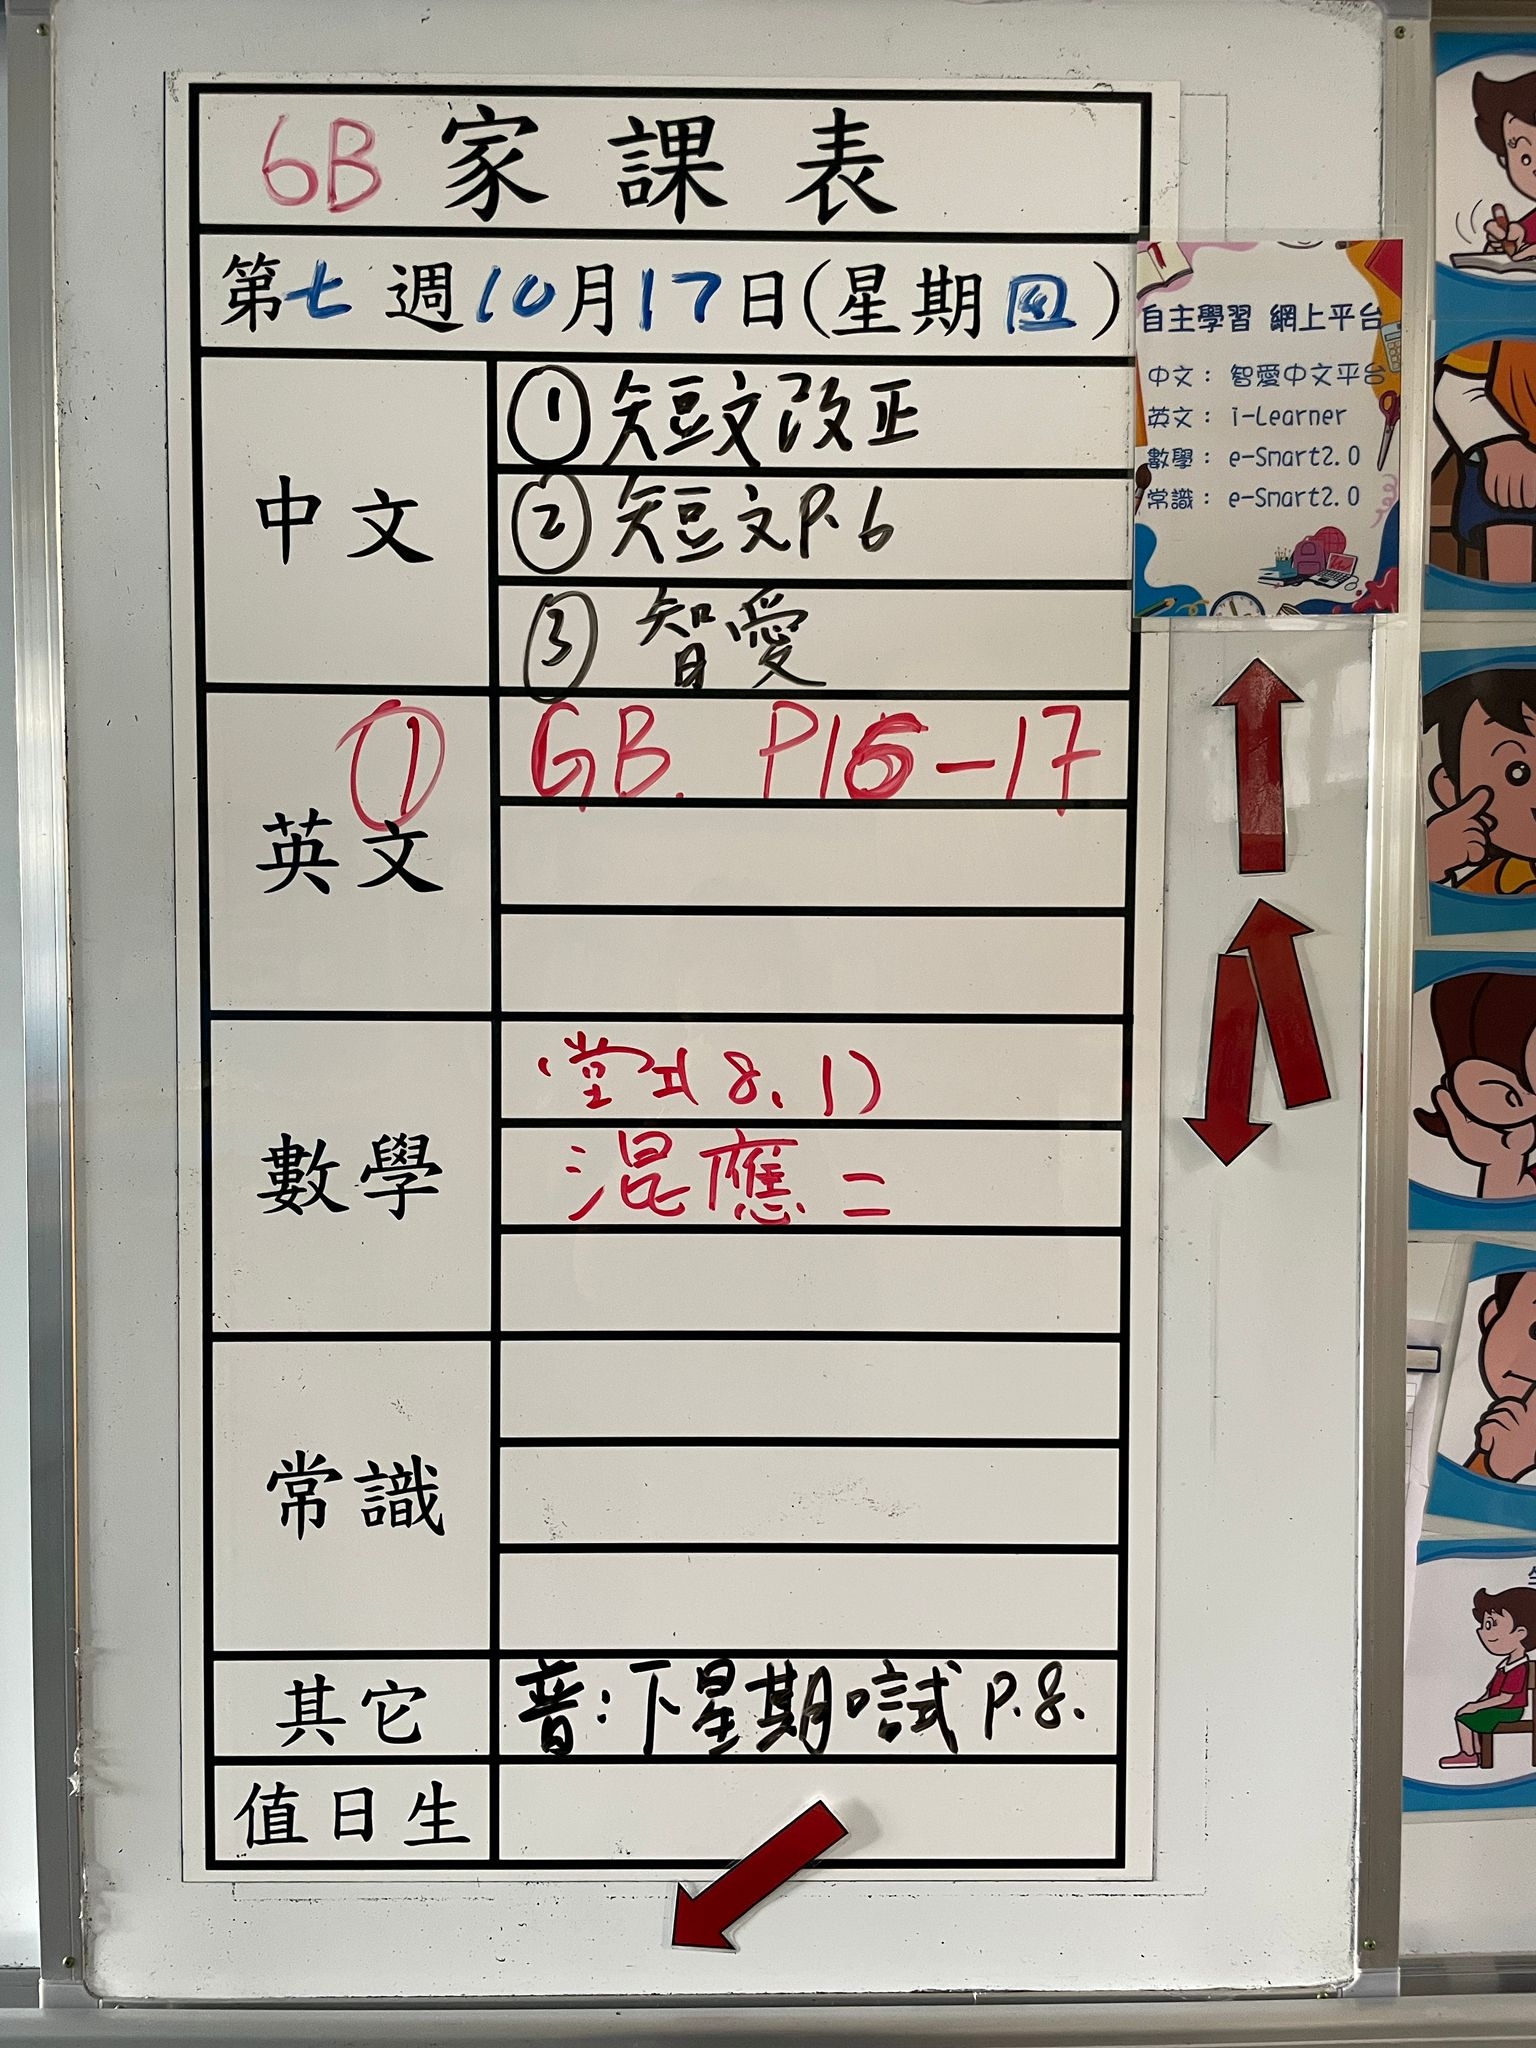 6B 家課表
第七週10月17日(星期四)
中文
① 短文改正
② 短文P.6
③ 智愛
英文
① GB. P16-17
數學
堂工(8.1)
混應二
常識
其它
普:下星期唁試 P.8.
值日生
自主學習 網上平台
中文: 智愛中文平台
英文: i-Learner
數學: e-Smart2.0
常識: e-Smart2.0